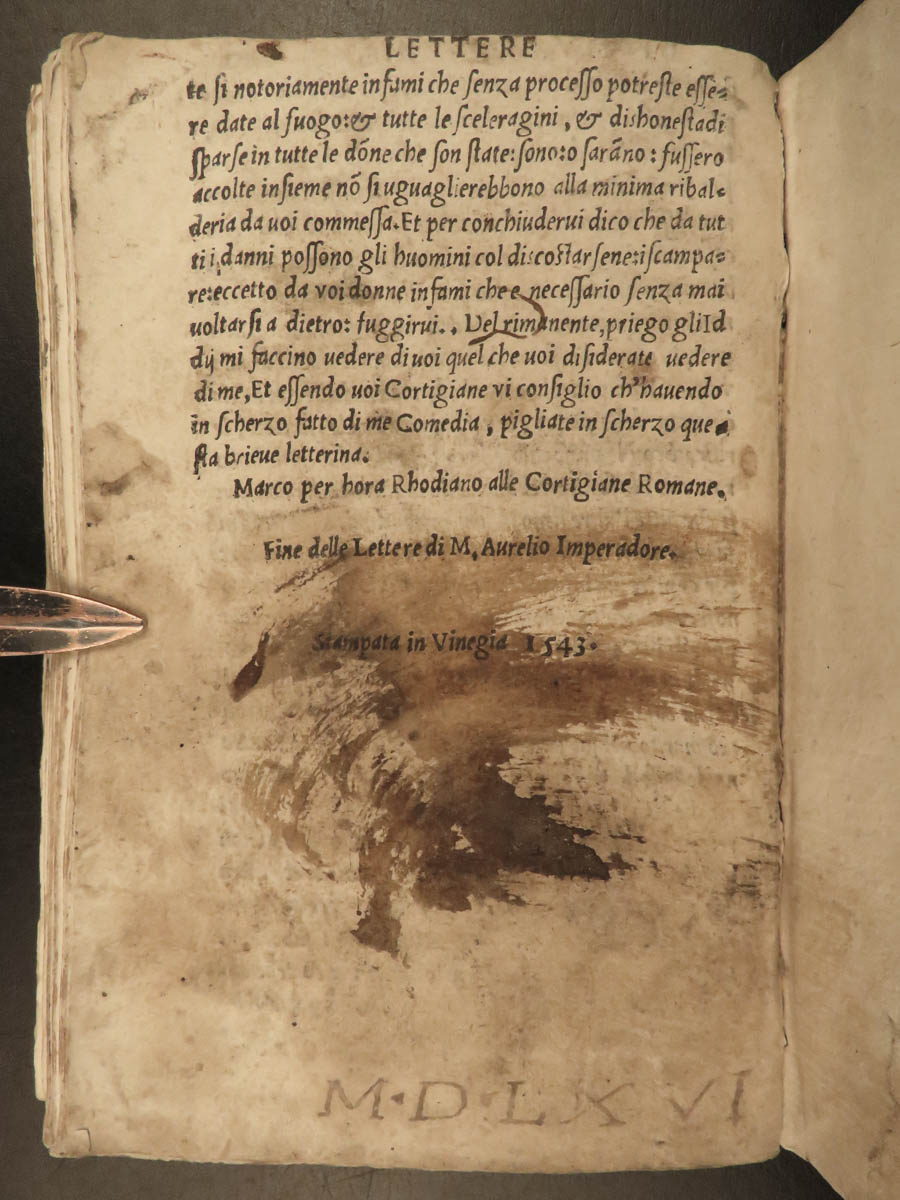 LETTERE
te si notoriamente infami che senza processo potreste esse=
re date al fuogo: & tutte le sceleragini, & dishonestà di
sparse in tutte le dõne che son state: sono: o sarãno: fussero
accolte insieme nõ si uguaglierebbono alla minima ribal=
deria da uoi commessa. Et per conchiuderui dico che da tut
ti i danni possono gli huomini col discostarsene: iscampa=
re: eccetto da voi donne infami che e necessario senza mai
uoltarsi a dietro: fuggirui.. Del rimanente, priego gli Id
dij mi faccino uedere di uoi quel che uoi disiderate uedere
di me, Et essendo uoi Cortigiane vi consiglio ch'hauendo
in scherzo fatto di me Comedia, pigliate in scherzo que=
sta brieue letterina.
Marco per hora Rhodiano alle Cortigiane Romane.
Fine delle Lettere di M. Aurelio Imperadore.
Stampata in Vinegia 1543.
M·D·LXVI